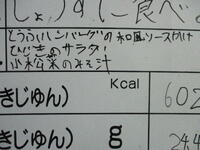 じょうずに食べ
とうふいりハンバーグの和風ソースかけ
ひじきのサラダ
小松菜のみそ汁
Kcal
きじゅん) 602
きじゅん) g 244